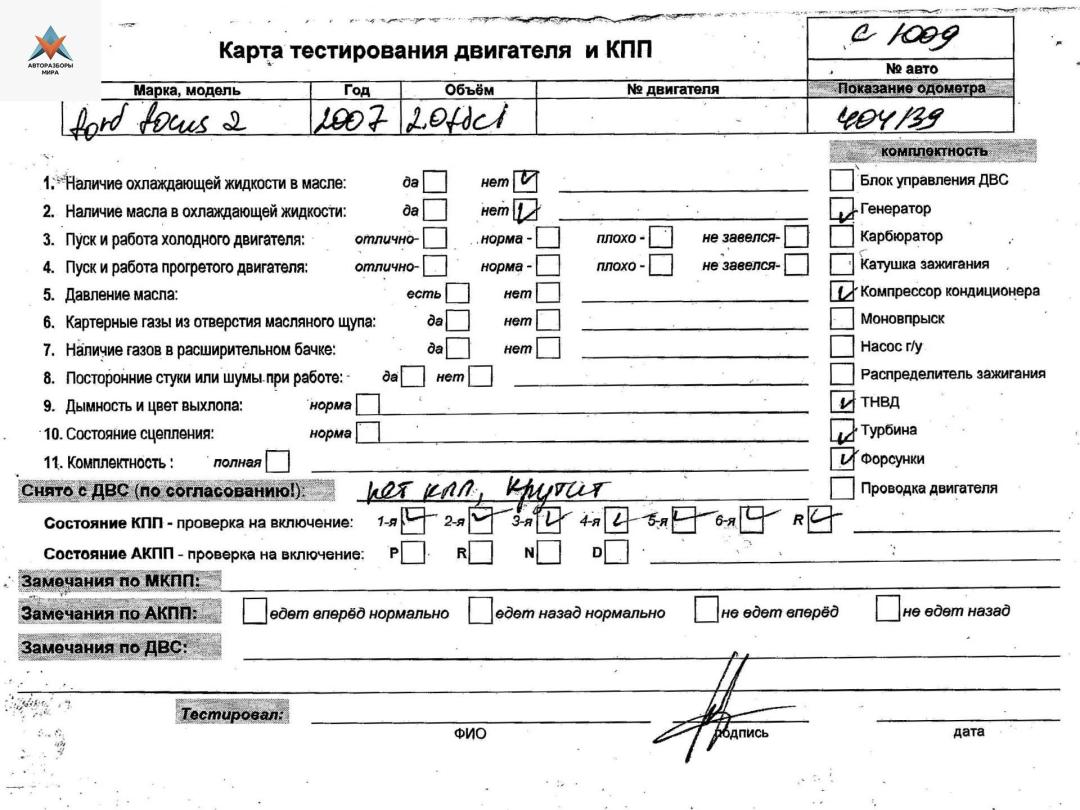 АВТОРАЗБОРЫ
МИРА
Карта тестирования двигателя и КПП
№ авто
Марка, модель Год Объём № двигателя Показание одометра
ford focus 2 2007 2.0tdci 404139
комплектность
1. Наличие охлаждающей жидкости в масле: да нет Блок управления ДВС
2. Наличие масла в охлаждающей жидкости: да нет Генератор
3. Пуск и работа холодного двигателя: отлично- норма - плохо - не завелся- Карбюратор
4. Пуск и работа прогретого двигателя: отлично- норма - плохо - не завелся- Катушка зажигания
5. Давление масла: есть нет Компрессор кондиционера
6. Картерные газы из отверстия масляного щупа: да нет Моновпрыск
7. Наличие газов в расширительном бачке: да нет Насос г/у
8. Посторонние стуки или шумы при работе: да нет Распределитель зажигания
9. Дымность и цвет выхлопа: норма ТНВД
10. Состояние сцепления: норма Турбина
11. Комплектность : полная Форсунки
Снято с ДВС (по согласованию!): нет кпп, крутит Проводка двигателя
Состояние КПП - проверка на включение: 1-я 2-я 3-я 4-я 5-я 6-я R
Состояние АКПП - проверка на включение: P R N D
Замечания по МКПП:
Замечания по АКПП: едет вперёд нормально едет назад нормально не едет вперёд не едет назад
Замечания по ДВС:
Тестировал:
ФИО подпись дата